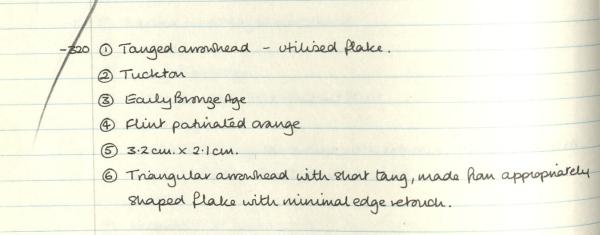 -320 ① Tanged arrowhead - utilised flake.
② Tuckton
③ Early Bronze Age
④ Flint patinated orange
⑤ 3.2cm. x 2.1cm.
⑥ Triangular arrowhead with short tang, made from appropriately
shaped flake with minimal edge retouch.